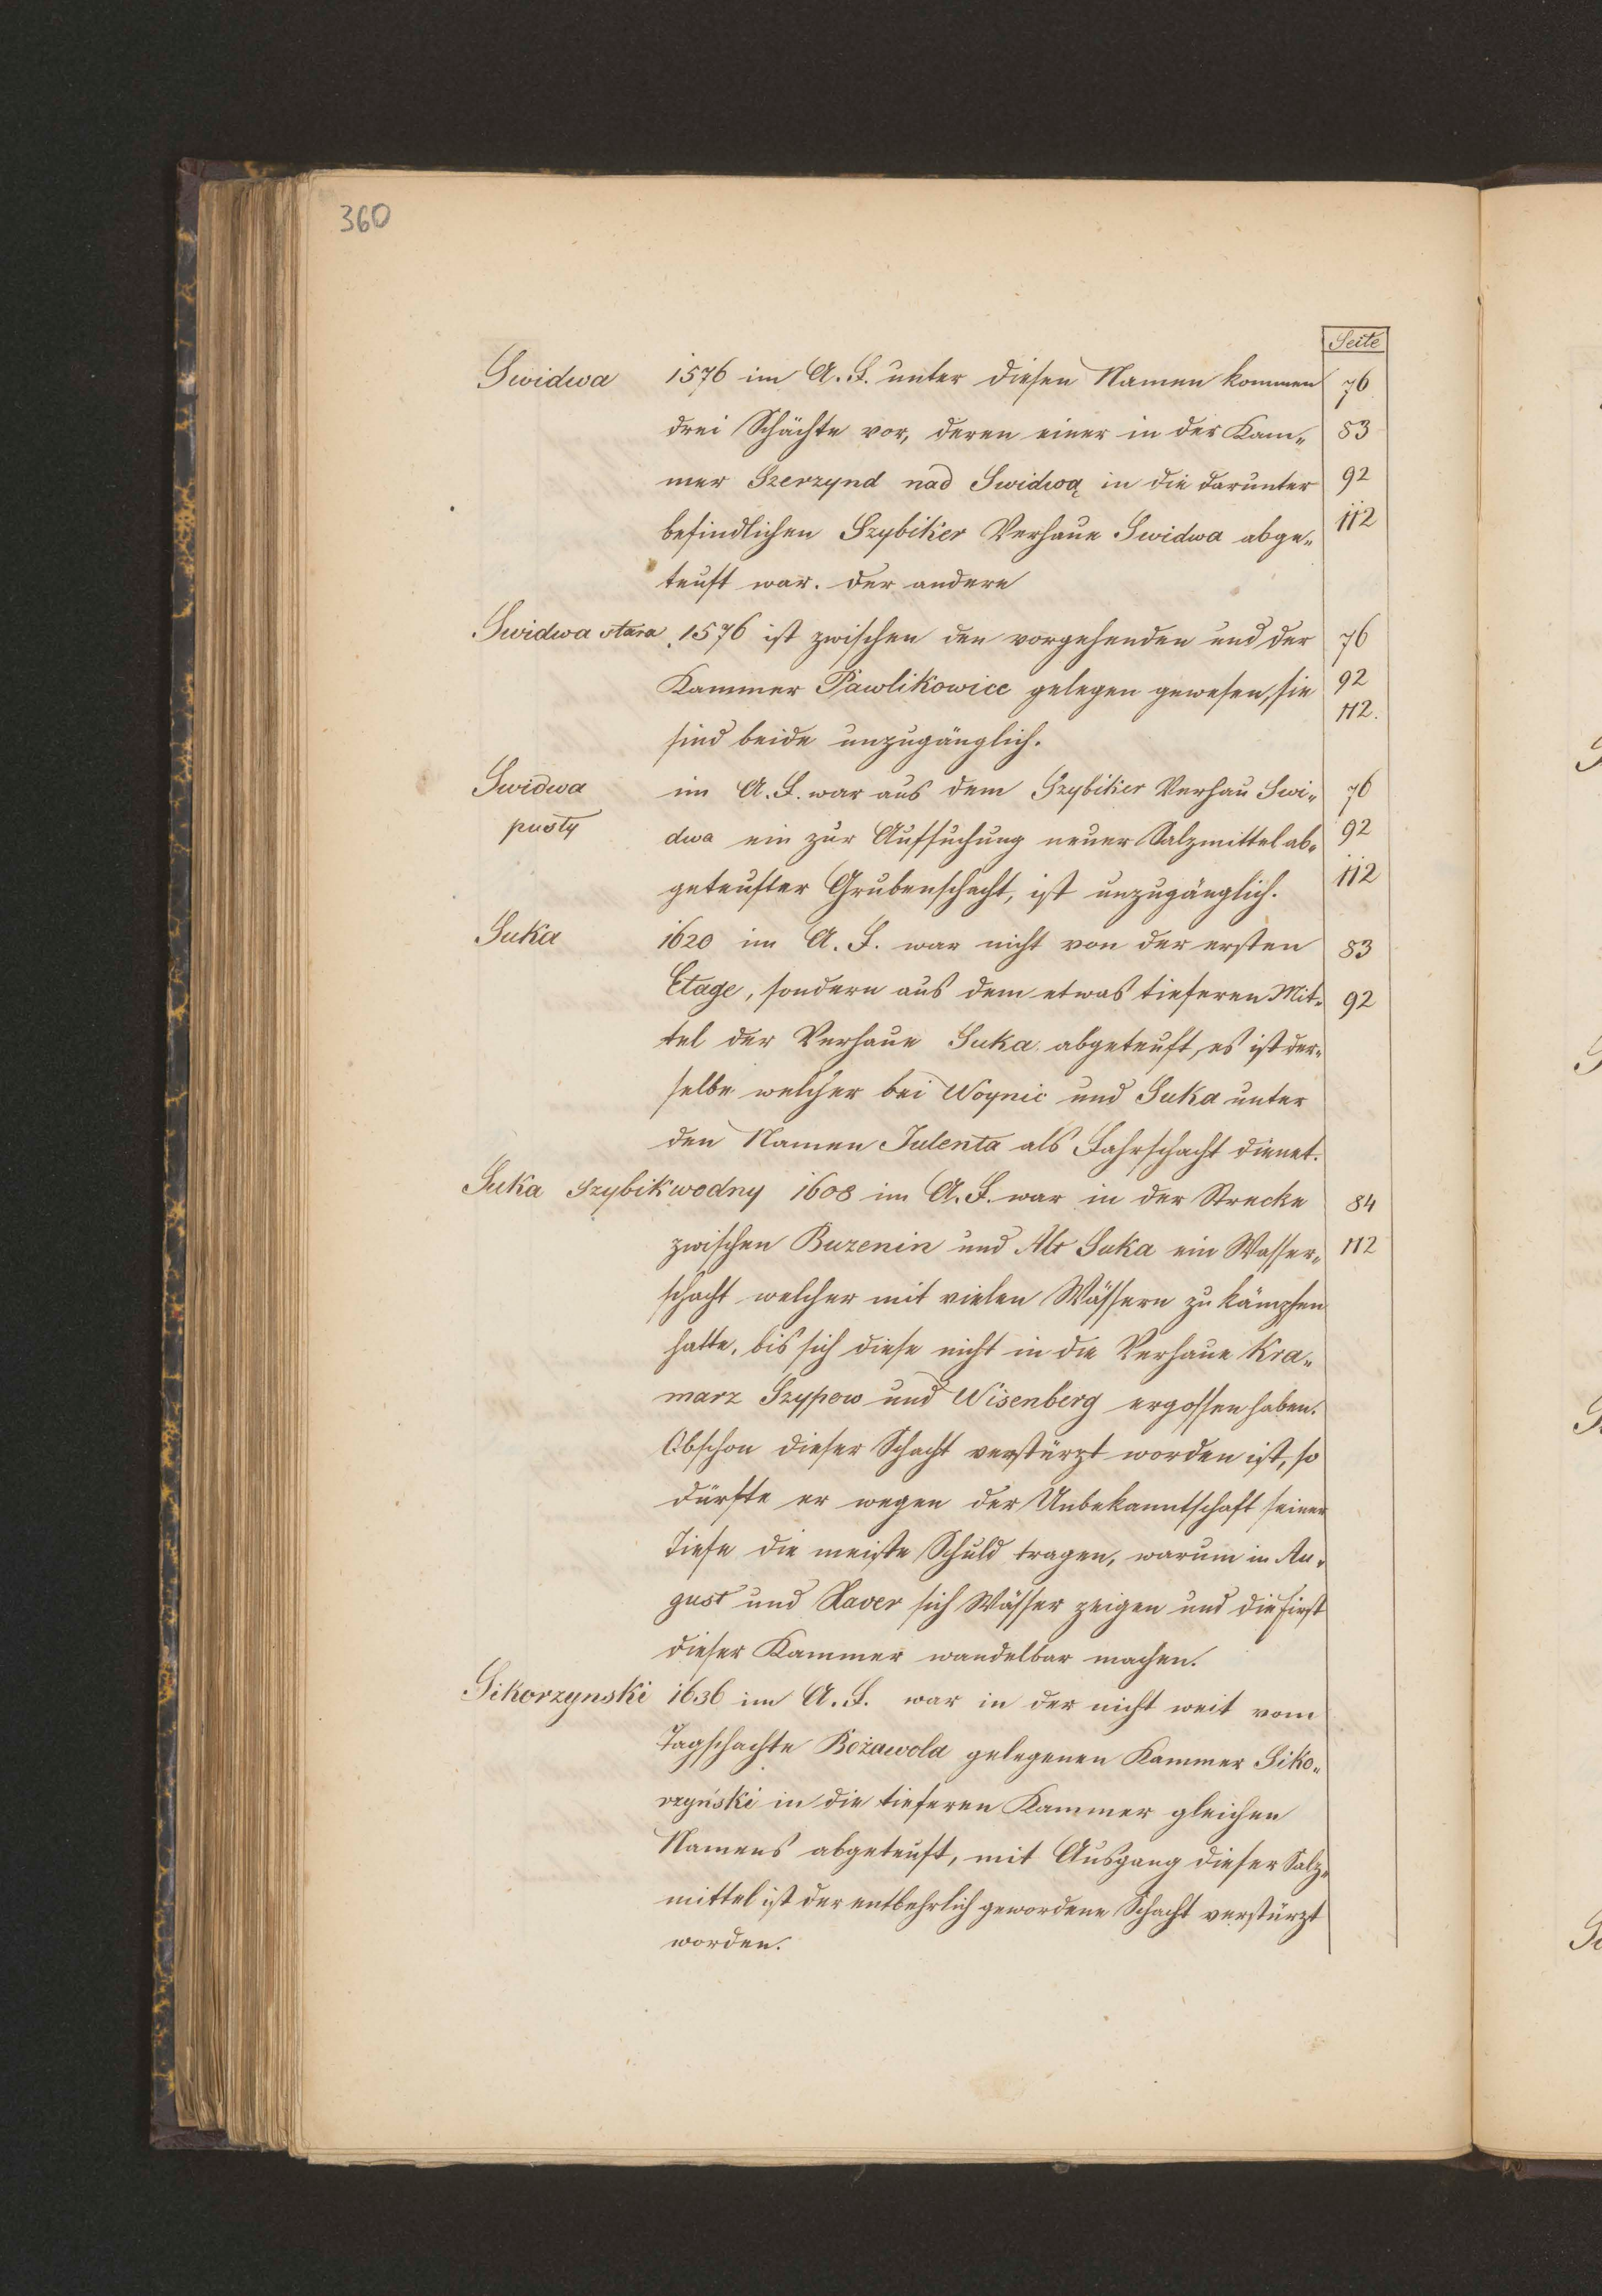 360
Seite
Swidwa 1576 im A. F. unter diesen Namen kommen 76
drei Schächte vor, deren einer in der Kam- 83
mer Szerzynd nad Swidwą in die darunter 92
befindlichen Szybiker Verhaue Swidwa abge- 112
teuft war. der andere
Swidwa stara 1576 ist zwischen den vorgehenden und der 76
Kammer Pawlikowice gelegen gewesen, sie 92
sind beide unzugänglich. 112.
Swidwa im A. F. war aus dem Szybiker Verhau Swi- 76
pusty dwa ein zur Aufsuchung neuer Salzmittel ab- 92
geteufter Grubenschacht, ist unzugänglich. 112
Suka 1620 im A. F. war nicht von der ersten 83
Etage, sondern aus dem etwas tieferen Mit- 92
tel der Verhaue Suka abgeteuft, es ist der-
selbe welcher bei Woynic und Suka unter
den Namen Julenta als Fahrschacht dienet.
Suka Szybik wodny 1608 im A. F. war in der Strecke 84
zwischen Buzenin und Alt Suka ein Wasser- 112
schacht welcher mit vielen Wässern zu kämpfen
hatte, bis sich diese nicht in die Verhaue Kra-
marz Szypow und Wisenberg ergossen haben.
Obschon dieser Schacht verstürzt worden ist, so
dürfte er wegen der Unbekanntschaft seiner
Tiefe die meiste Schuld tragen, warum in Au-
gust und Xaver sich Wässer zeigen und die First
dieser Kammer wandelbar machen.
Sikorzynski 1636 im A. F. war in der nicht weit vom
Tagschachte Bożawola gelegenen Kammer Siko-
rzyński in die tieferen Kammer gleichen
Namens abgeteuft, mit Ausgang dieser Salz-
mittel ist der entbehrlich gewordene Schacht verstürzt
worden.